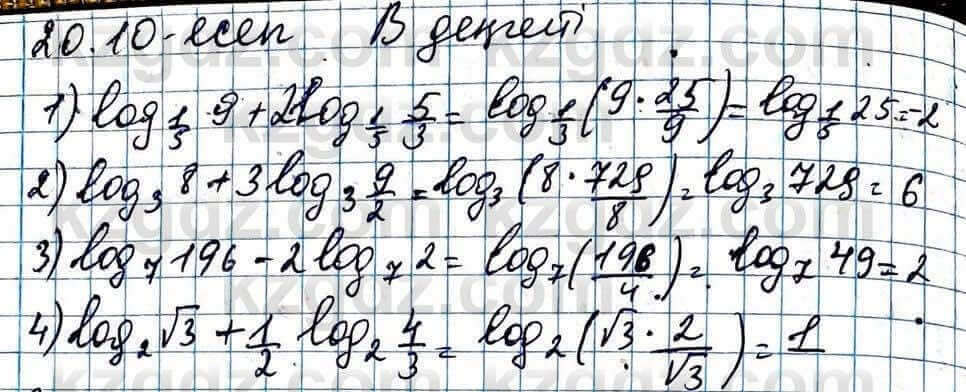 20.10-есеп В деңгейі
1) log_{1/5} 9 + 2log_{1/5} 5/3 = log_{1/3} (9 · 25/9) = log_{1/5} 25 = -2
2) log_3 8 + 3 log_3 9/2 = log_3 (8 · 729/8) = log_3 729 = 6
3) log_7 196 - 2 log_7 2 = log_7 (196/4) = log_7 49 = 2
4) log_2 √3 + 1/2 log_2 4/3 = log_2 (√3 · 2/√3) = 1